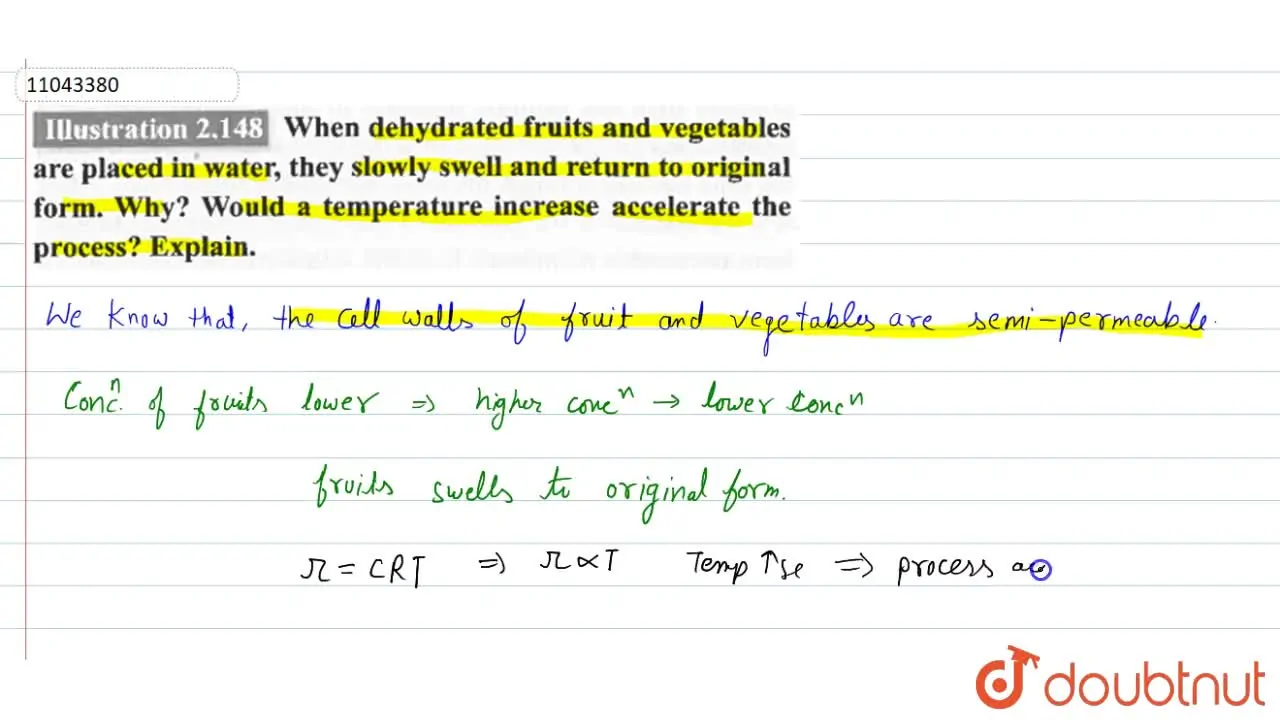 11043380
Illustration 2.148 When dehydrated fruits and vegetables
are placed in water, they slowly swell and return to original
form. Why? Would a temperature increase accelerate the
process? Explain.
We know that, the cell walls of fruit and vegetables are semi-permeable.
Concⁿ. of fruits lower ⇒ higher concⁿ → lower concⁿ
fruits swells to original form.
π = CRT ⇒ π ∝ T Temp ↑se ⇒ process
doubtnut